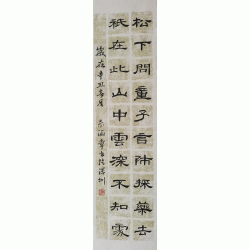 松下問童子言師採藥去
祇在此山中雲深不知處
歲在辛丑